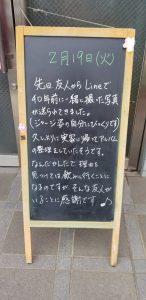 2月19日(火)
先日 友人から Lineで
40年前に一緒に撮った写真
が送られてきました。
(ジャージ姿の自分にびっくりです)
久しぶりに実家に帰ってアルバム
の整理をしていたそうです。
なんだかんだで理由を
見つけては飲みに行くことに
なるのですが、そんな友人が
いることに感謝です♪